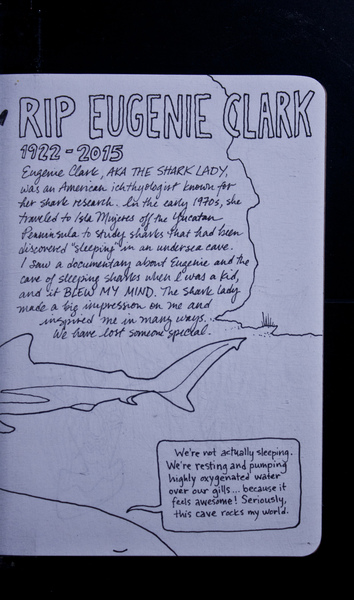 RIP EUGENIE CLARK
1922-2015
Eugenie Clark, AKA THE SHARK LADY,
was an American ichthyologist known for
her shark research. In the early 1970s, she
traveled to Isla Mujeres off the Yucatan
Peninsula to study sharks that had been
discovered "sleeping" in an undersea cave.
I saw a documentary about Eugenie and the
cave of sleeping sharks when I was a kid,
and it BLEW MY MIND. The shark lady
made a big impression on me and
inspired me in many ways.
We have lost someone special.
We're not actually sleeping.
We're resting and pumping
highly oxygenated water
over our gills... because it
feels awesome! Seriously,
this cave rocks my world.